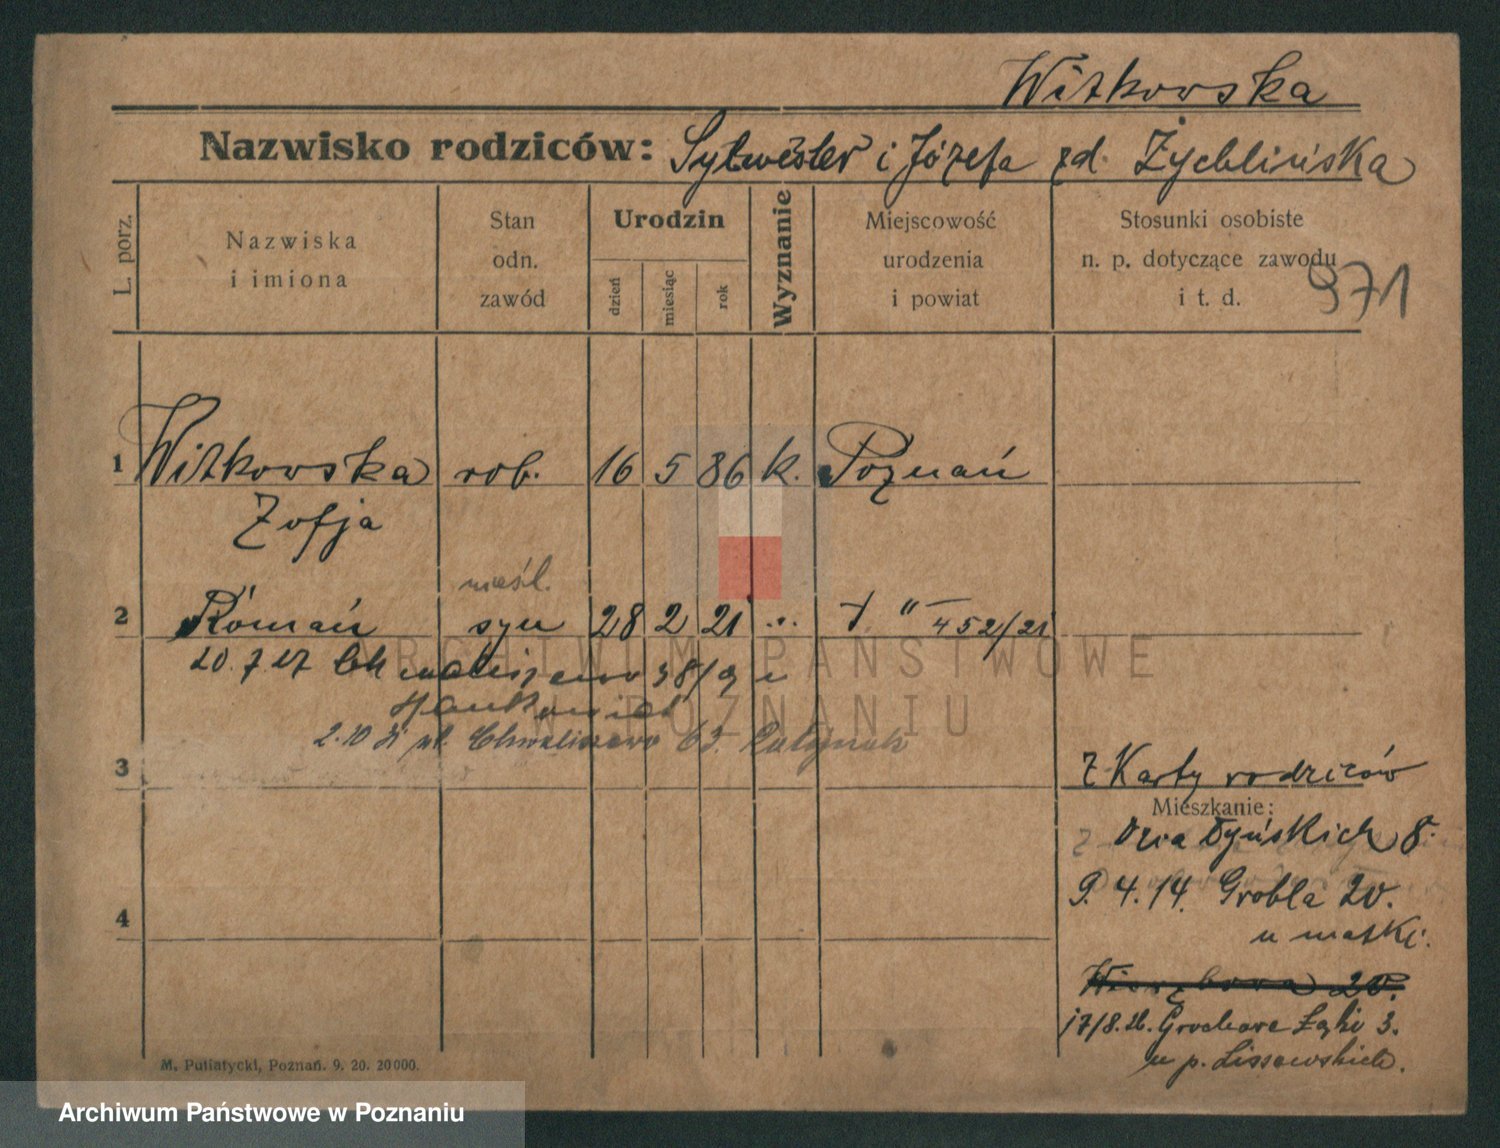 Witkowska
Nazwisko rodziców: Sylwester i Józefa zd. Żychlińska
L. porz.
Nazwiska
i imiona
Stan
odn.
zawód
Urodzin
dzień
miesiąc
rok
Wyznanie
Miejscowość
urodzenia
i powiat
Stosunki osobiste
n. p. dotyczące zawodu
i t. d.
971
1 Witkowska rob. 16 5 86 k. Poznań
Zofja
nieśl.
2 Roman syn 28 2 21 " 452/21
20.7.27 38/9 u
2.10
3
Z Karty rodziców
Mieszkanie:
Działyńskich 8.
9. 4. 14. Grobla 20.
u matki.
4
20.
17/8. 26. Grochowe Łąki 3.
u p. Lissowskich.
M. Putiatycki, Poznań. 9. 20. 20000.
ARCHIWUM PAŃSTWOWE
W POZNANIU
Archiwum Państwowe w Poznaniu